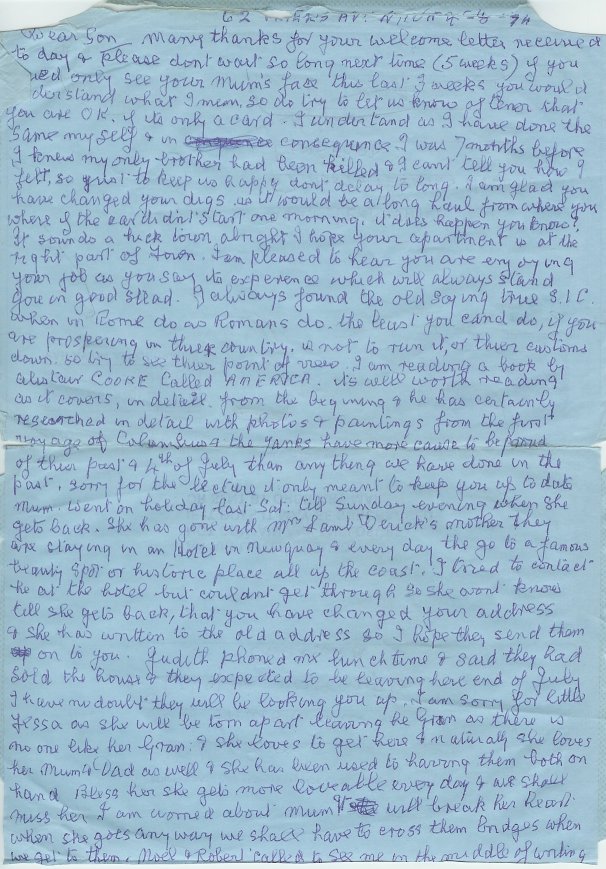 62
Dear Son Many thanks for your welcome letter received
to day & please dont wait so long next time (5 weeks) if you
only see your mum's face this last 2 weeks you would
derstand what I mean, so do try to let us know oftener that
you are OK. if its only a card. I understand as I have done the
same myself & in consequence I was 7 months before
I knew my only brother had been killed & I cant tell you how I
felt, so just to keep us happy dont delay to long. I am glad you
have changed your digs as it would be a long haul from where you
where if the car didnt start one morning, it does happen you know!
It sounds a tuck town alright I hope your apartment is at the
right part of Town. I am pleased to hear you are enjoying
your job as you say its experience which will always stand
you in good stead. I always found the old saying true S.I.C.
when in Rome do as Romans do. the least you can do, if you
are prospering in thier country, is not to run it, or thier customs
down. so try to see thier point of view. I am reading a book by
Alistair COOKE Called AMERICA. its well worth reading
as it covers, in detail. from the begining & he has certainly
researched in detail with photos & paintings from the first
voyage of Columbus & the yanks have more cause to be proud
of thier past & 4th of July than any thing we have done in the
past. sorry for the lecture it only meant to keep you up to date
mum. went on holiday last Sat. till Sunday evening when she
gets back. She has gone with Mrs Derick's mother they
are staying in an Hotel in Newquay & every day the go to a famous
beauty spot or historic place all up the coast. I tired to contact
he at the hotel but couldnt get through so she wont know
till she gets back, that you have changed your address
& she has written to the old address so I hope they send them
on to you. Judith phoned me lunch time & said they had
sold the house & they expected to be leaving here end of July
I have no doubt they will be looking you up. I am sorry for little
as she will be torn apart leaving he Gran as there is
no one like her Gran. & she loves to get here & naturally she loves
her Mum & Dad as well & she has been used to having them both on
hand Bless her she gets more loveable every day & we shall
miss her I am worried about mum it will break her heart
when she gots any way we shall have to cross them bridges when
we get to them. Noel & Robert called to see me in the middle of writing